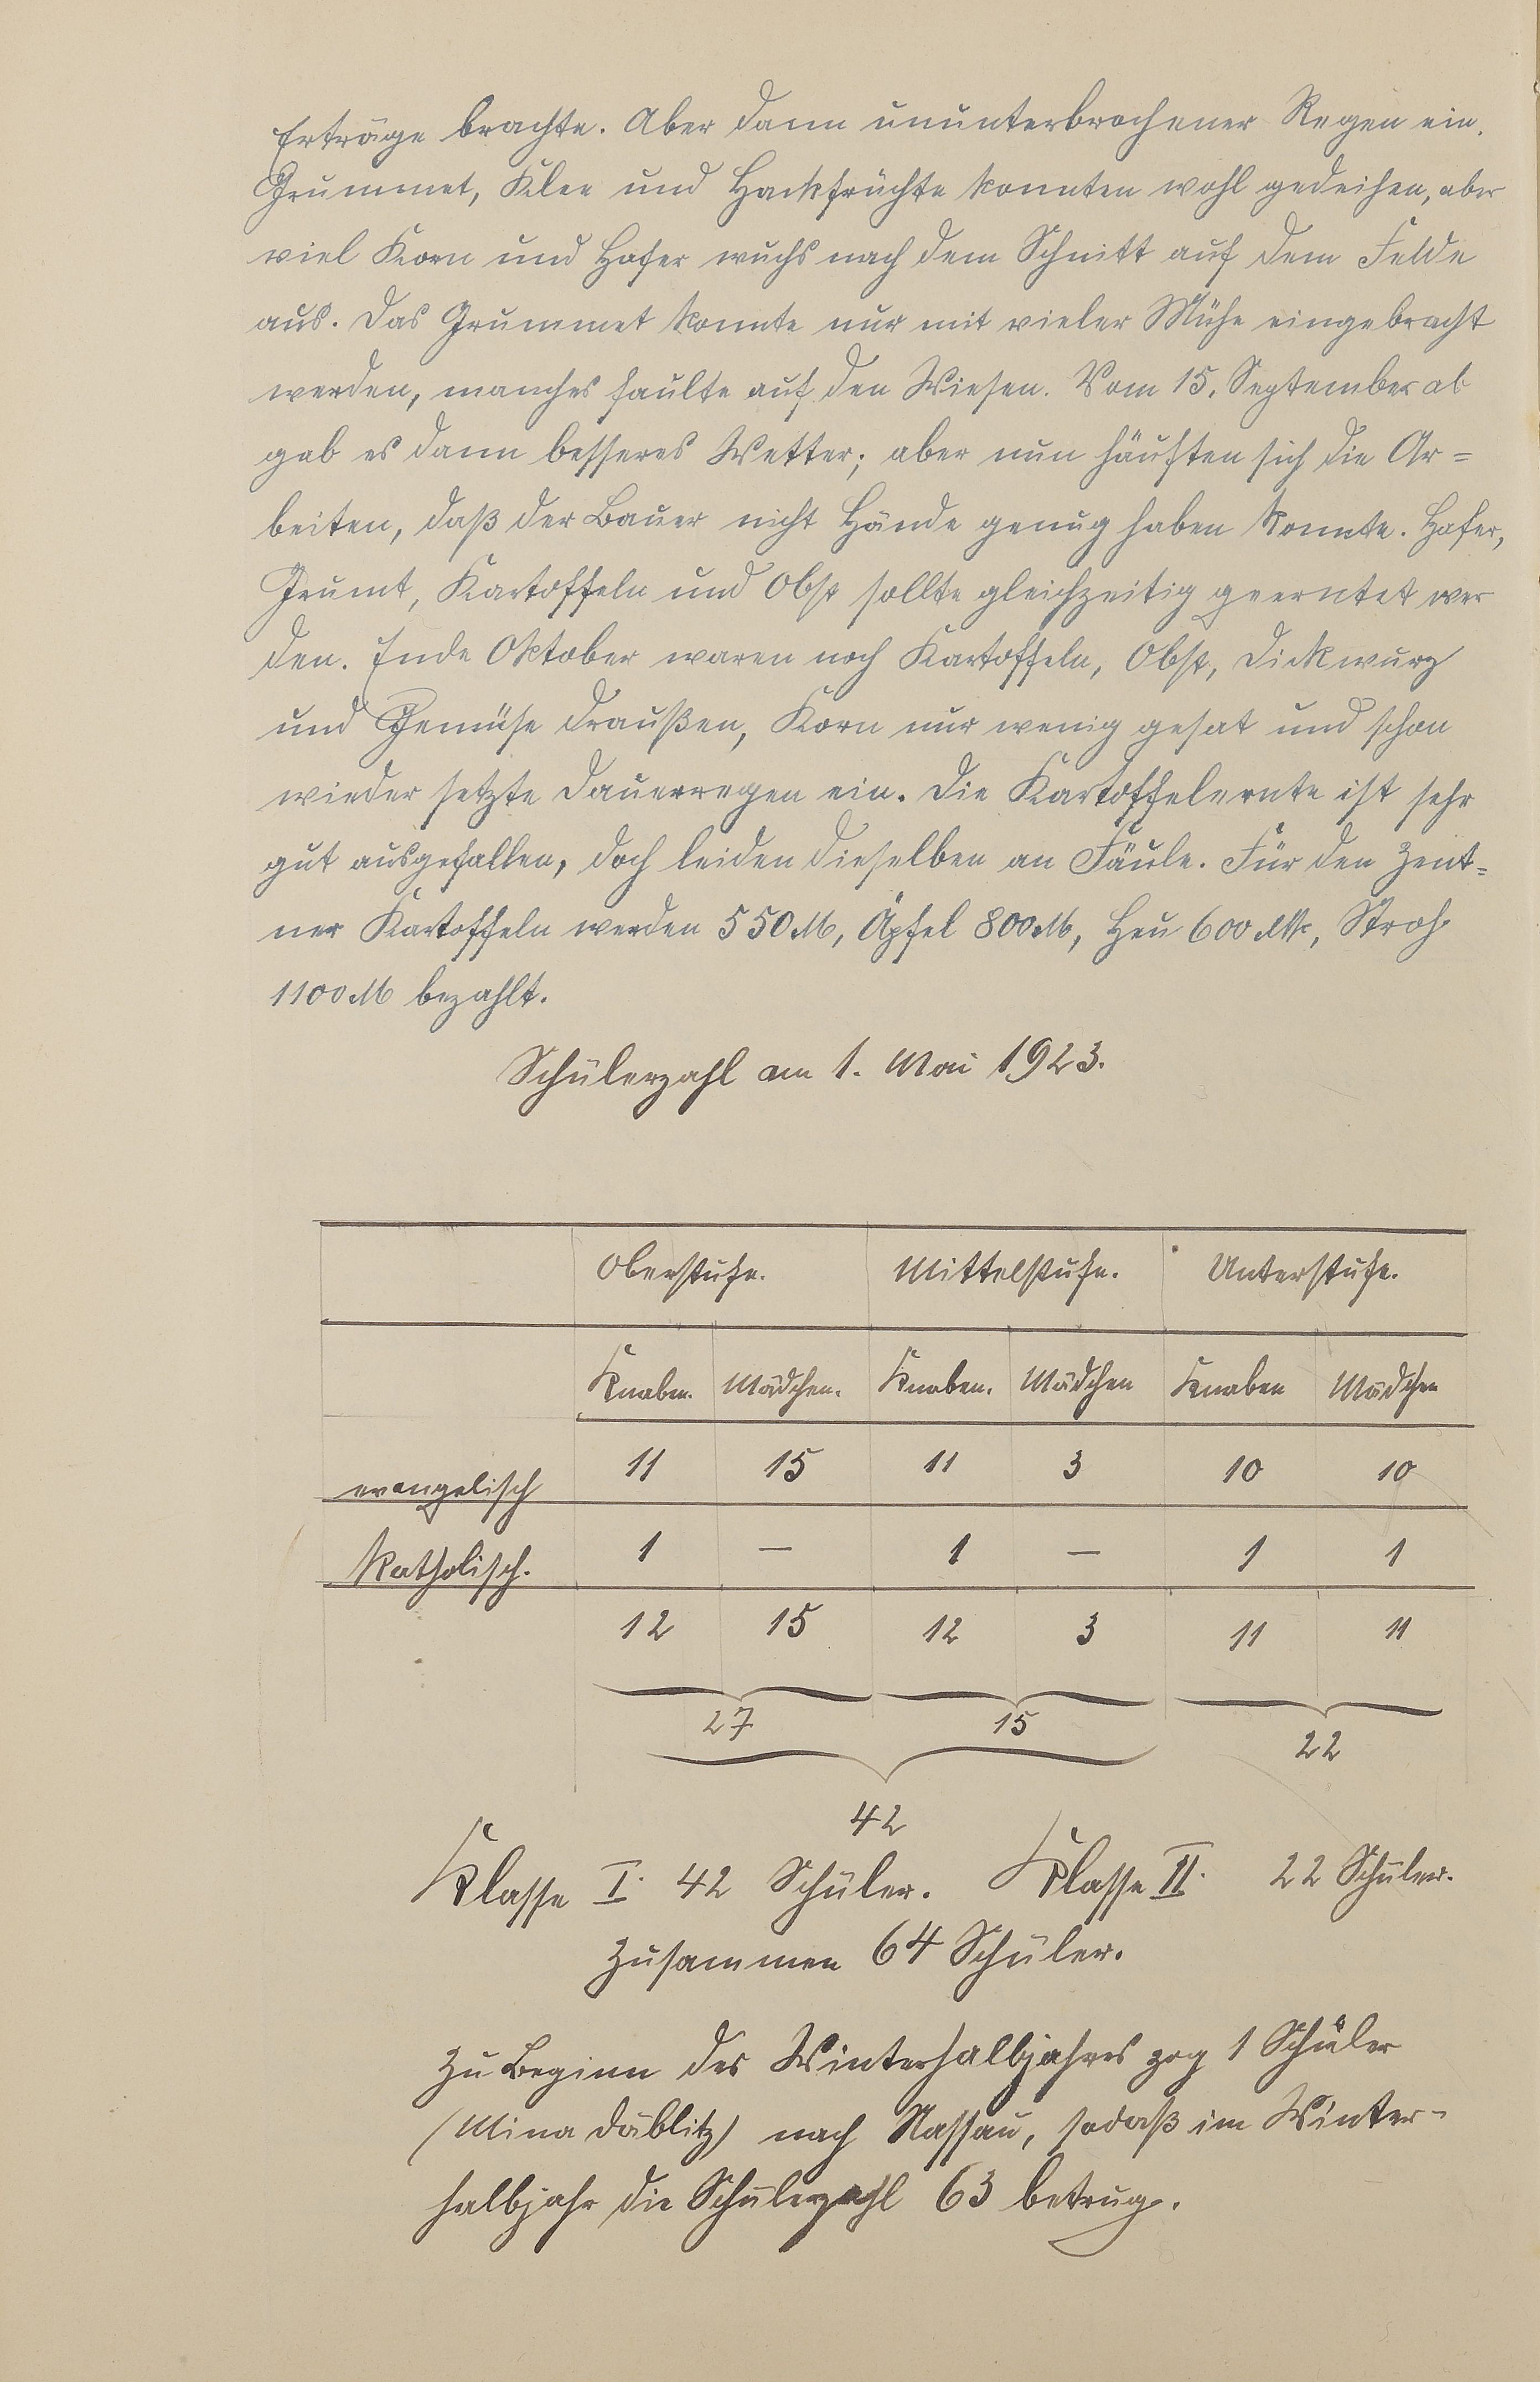 Erträge brachte. Aber dann ununterbrochener Regen ein.
Grummet, Klee und Hackfrüchte konnten wohl gedeihen, aber
viel Korn und Hafer wuchs nach dem Schnitt auf dem Felde
aus. Das Grummet konnte nur mit vieler Mühe eingebracht
werden, manches faulte auf den Wiesen. Vom 15. September ab
gab es dann besseres Wetter; aber nun häuften sich die Ar=
beiten, daß der Bauer nicht Hände genug haben konnte. Hafer,
Grumt, Kartoffeln und Obst sollte gleichzeitig geerntet wer
den. Ende Oktober waren noch Kartoffeln, Obst, Dickwurz
und Gemüse draußen, Korn nur wenig gesat und schon
wieder setzte Dauerregen ein. Die Kartoffelernte ist sehr
gut ausgefallen, doch leiden dieselben an Fäule. Für den Zent=
ner Kartoffeln werden 550 M, Äpfel 800 M, Heu 600 M, Stroh
1100 M bezahlt.
Schülerzahl am 1. Mai 1923.
Oberstufe. Mittelstufe. Unterstufe.
Knaben. Mädchen. Knaben. Mädchen Knaben Mädchen
evangelisch 11 15 11 3 10 10
katholisch. 1 — 1 — 1 1
12 15 12 3 11 11
27 15 22
42
Klasse I. 42 Schüler. Klasse II. 22 Schüler.
Zusammen 64 Schüler.
Zu Beginn des Winterhalbjahres zog 1 Schüler
(Mina Däblitz) nach Nassau, sodaß im Winter-
halbjahr die Schülerzahl 63 betrug.